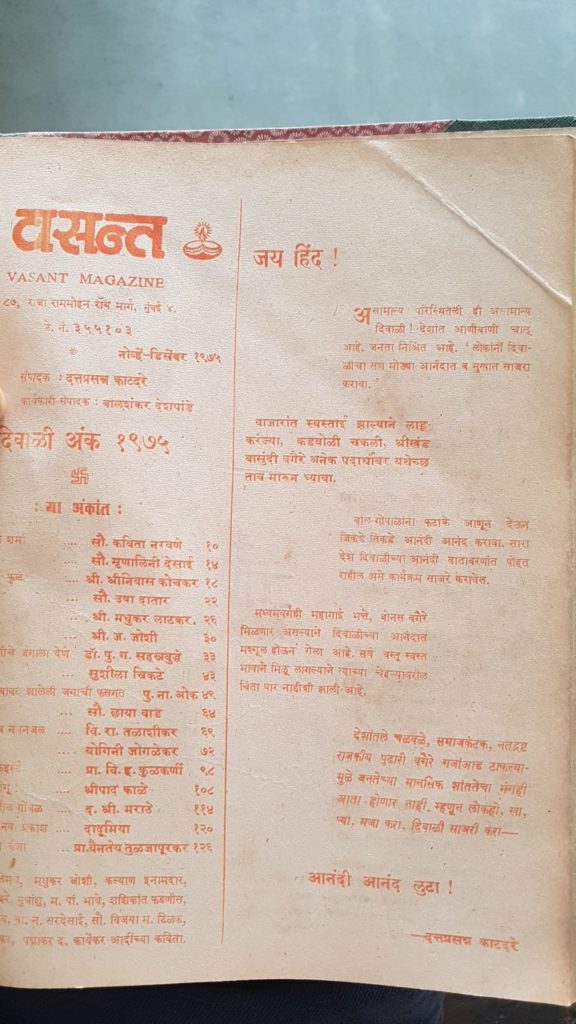 वसन्त
VASANT MAGAZINE
८७, राजा राममोहन रॉय मार्ग, मुंबई ४.
टे. नं. ३५५१०३
नोव्हें-डिसेंबर १९७५
संपादक : दत्तप्रसन्न काटदरे
कार्यकारी संपादक : बालशंकर देशपांडे
दिवाळी अंक १९७५
: या अंकांत :
शर्मा सौ. कविता नरवणे १०
.... सौ. मृणालिनी देसाई १४
फुल श्री. श्रीनिवास कोचकर १८
.... सौ. उषा दातार २२
.... श्री. मधुकर लाटकर. २६
.... श्री. ज. जोशी ३०
जगाला देणें डॉ. पु. ग. सहस्रबुद्धे ३३
सुशीला चिकटे ४३
झालेली जगाची फसगत पु. ना. ओक ४९
.... सौ. छाया वाड ६४
नवनजल .... वि. रा. तळाशीकर ६९
.... योगिनी जोगळेकर ७२
.... प्रा. वि. ह. कुळकर्णी ९८
.... श्रीपाद काळे १०८
.... द. श्री. मराठे ११४
प्रकाश .... दादूमिया १२०
.... प्रा. वैनतेय तुळजापूरकर १२६
मधुकर जोशी, कल्याण इनामदार,
सुधांशु, म. पां. भावे, शशिकांत फडणीस,
वा. न. सरदेसाई, सौ. विजया म. टिळक,
पद्माकर द. कार्येकर आदींच्या कविता.
जय हिंद !
असामान्य परिस्थितली ही असामान्य
दिवाळी ! देशांत आणीबाणी चालू
आहे. जनता निश्चित आहे. ' लोकांनीं दिवा-
ळीचा सण मोठ्या आनंदात व सुखात साजरा
करावा. '
बाजारांत स्वस्ताई झाल्याने लाडू
करंज्या, कडबोळी चकली, श्रीखंड
बासुंदी वगैरे अनेक पदार्थांवर यथेच्छ
ताव मारून घ्यावा.
बाल-गोपाळांना फटाके आणून देऊन
जिकडे तिकडे आनंदी आनंद करावा. सारा
देश दिवाळीच्या आनंदी वातावरणांत पोहत
राहील असे कार्यक्रम साजरे करावेत.
मध्यमवर्गही महागाई भत्ते, बोनस वगैरे
मिळणार असल्याने दिवाळीच्या आनंदात
मश्गूल होऊन गेला आहे. सर्व वस्तू स्वस्त
भावाने मिळू लागल्याने त्याच्या चेहऱ्यावरील
चिंता पार नाहीशी झाली आहे.
देशांतले चळवळे, समाजकंटक, नतद्रष्ट
राजकीय पुढारी वगैरे गजांआड टाकल्या-
मुळे जनतेच्या मानसिक शांततेचा भंगही
आता होणार नाही. म्हणून लोकहो, खा,
प्या, मजा करा, दिवाळी साजरी करा—
आनंदी आनंद लुटा !
—दत्तप्रसन्न काटदरे